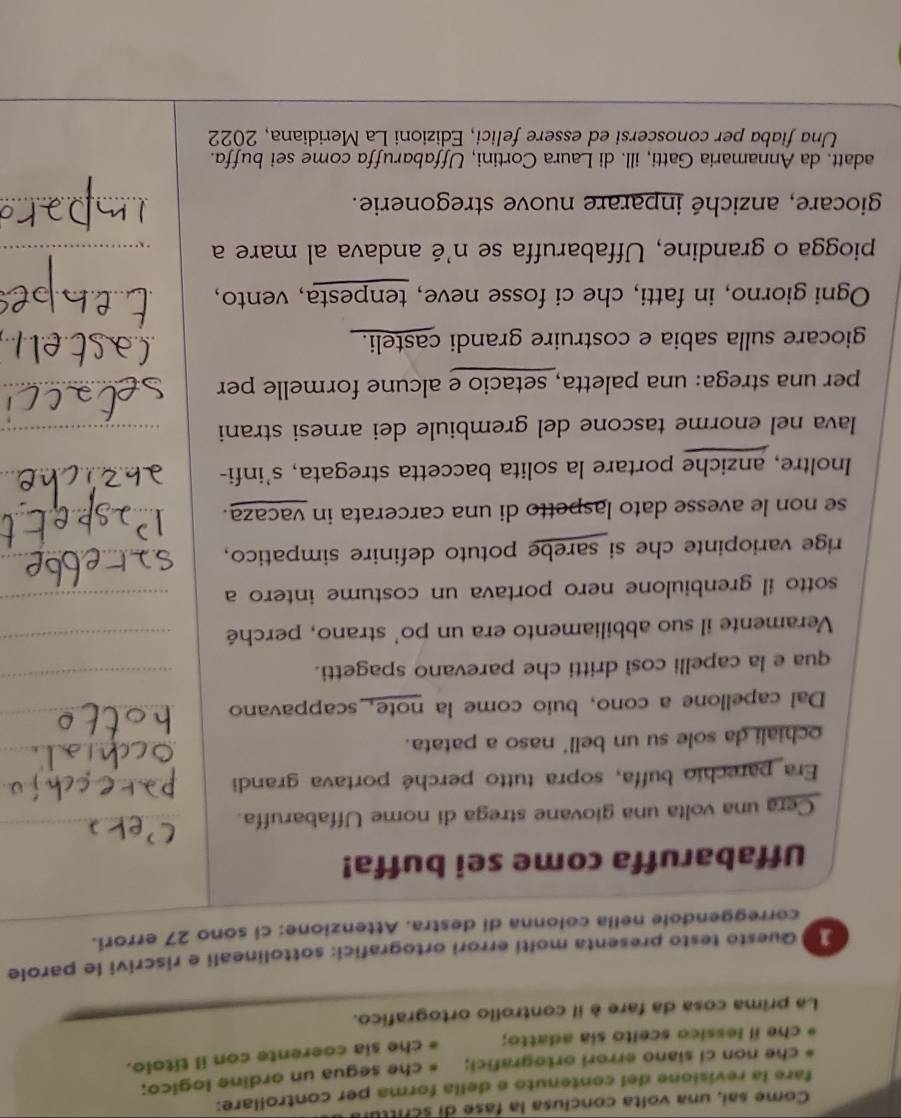 Come sai, una volta conclusa la fase di scrittura
fare la revisione del contenuto e della forma per controllare:
• che non ci siano errori ortografici; • che segua un ordine logico;
• che il lessico scelto sia adatto; • che sia coerente con il titolo.
La prima cosa da fare è il controllo ortografico.
1 Questo testo presenta molti errori ortografici: sottolineali e riscrivi le parole
correggendole nella colonna di destra. Attenzione: ci sono 27 errori.
Uffabaruffa come sei buffa!
Cera una volta una giovane strega di nome Uffabaruffa. C'era
Era parechio buffa, sopra tutto perché portava grandi parecchio
ochiali da sole su un bell' naso a patata. occhiali
Dal capellone a cono, buio come la note, scappavano notte
qua e la capelli così dritti che parevano spagetti.
Veramente il suo abbiliamento era un po' strano, perché
sotto il grenbiulone nero portava un costume intero a
rige variopinte che si sarebe potuto definire simpatico, sarebbe
se non le avesse dato laspetto di una carcerata in vacaza. l'aspett
Inoltre, anziche portare la solita baccetta stregata, s'infi- anziche
lava nel enorme tascone del grembiule dei arnesi strani
per una strega: una paletta, setacio e alcune formelle per setacci
giocare sulla sabia e costruire grandi casteli. castell
Ogni giorno, in fatti, che ci fosse neve, tenpesta, vento, tenpes
piogga o grandine, Uffabaruffa se n'é andava al mare a
giocare, anziché inparare nuove stregonerie. impara
adatt. da Annamaria Gatti, ill. di Laura Cortini, Uffabaruffa come sei buffa.
Una fiaba per conoscersi ed essere felici, Edizioni La Meridiana, 2022